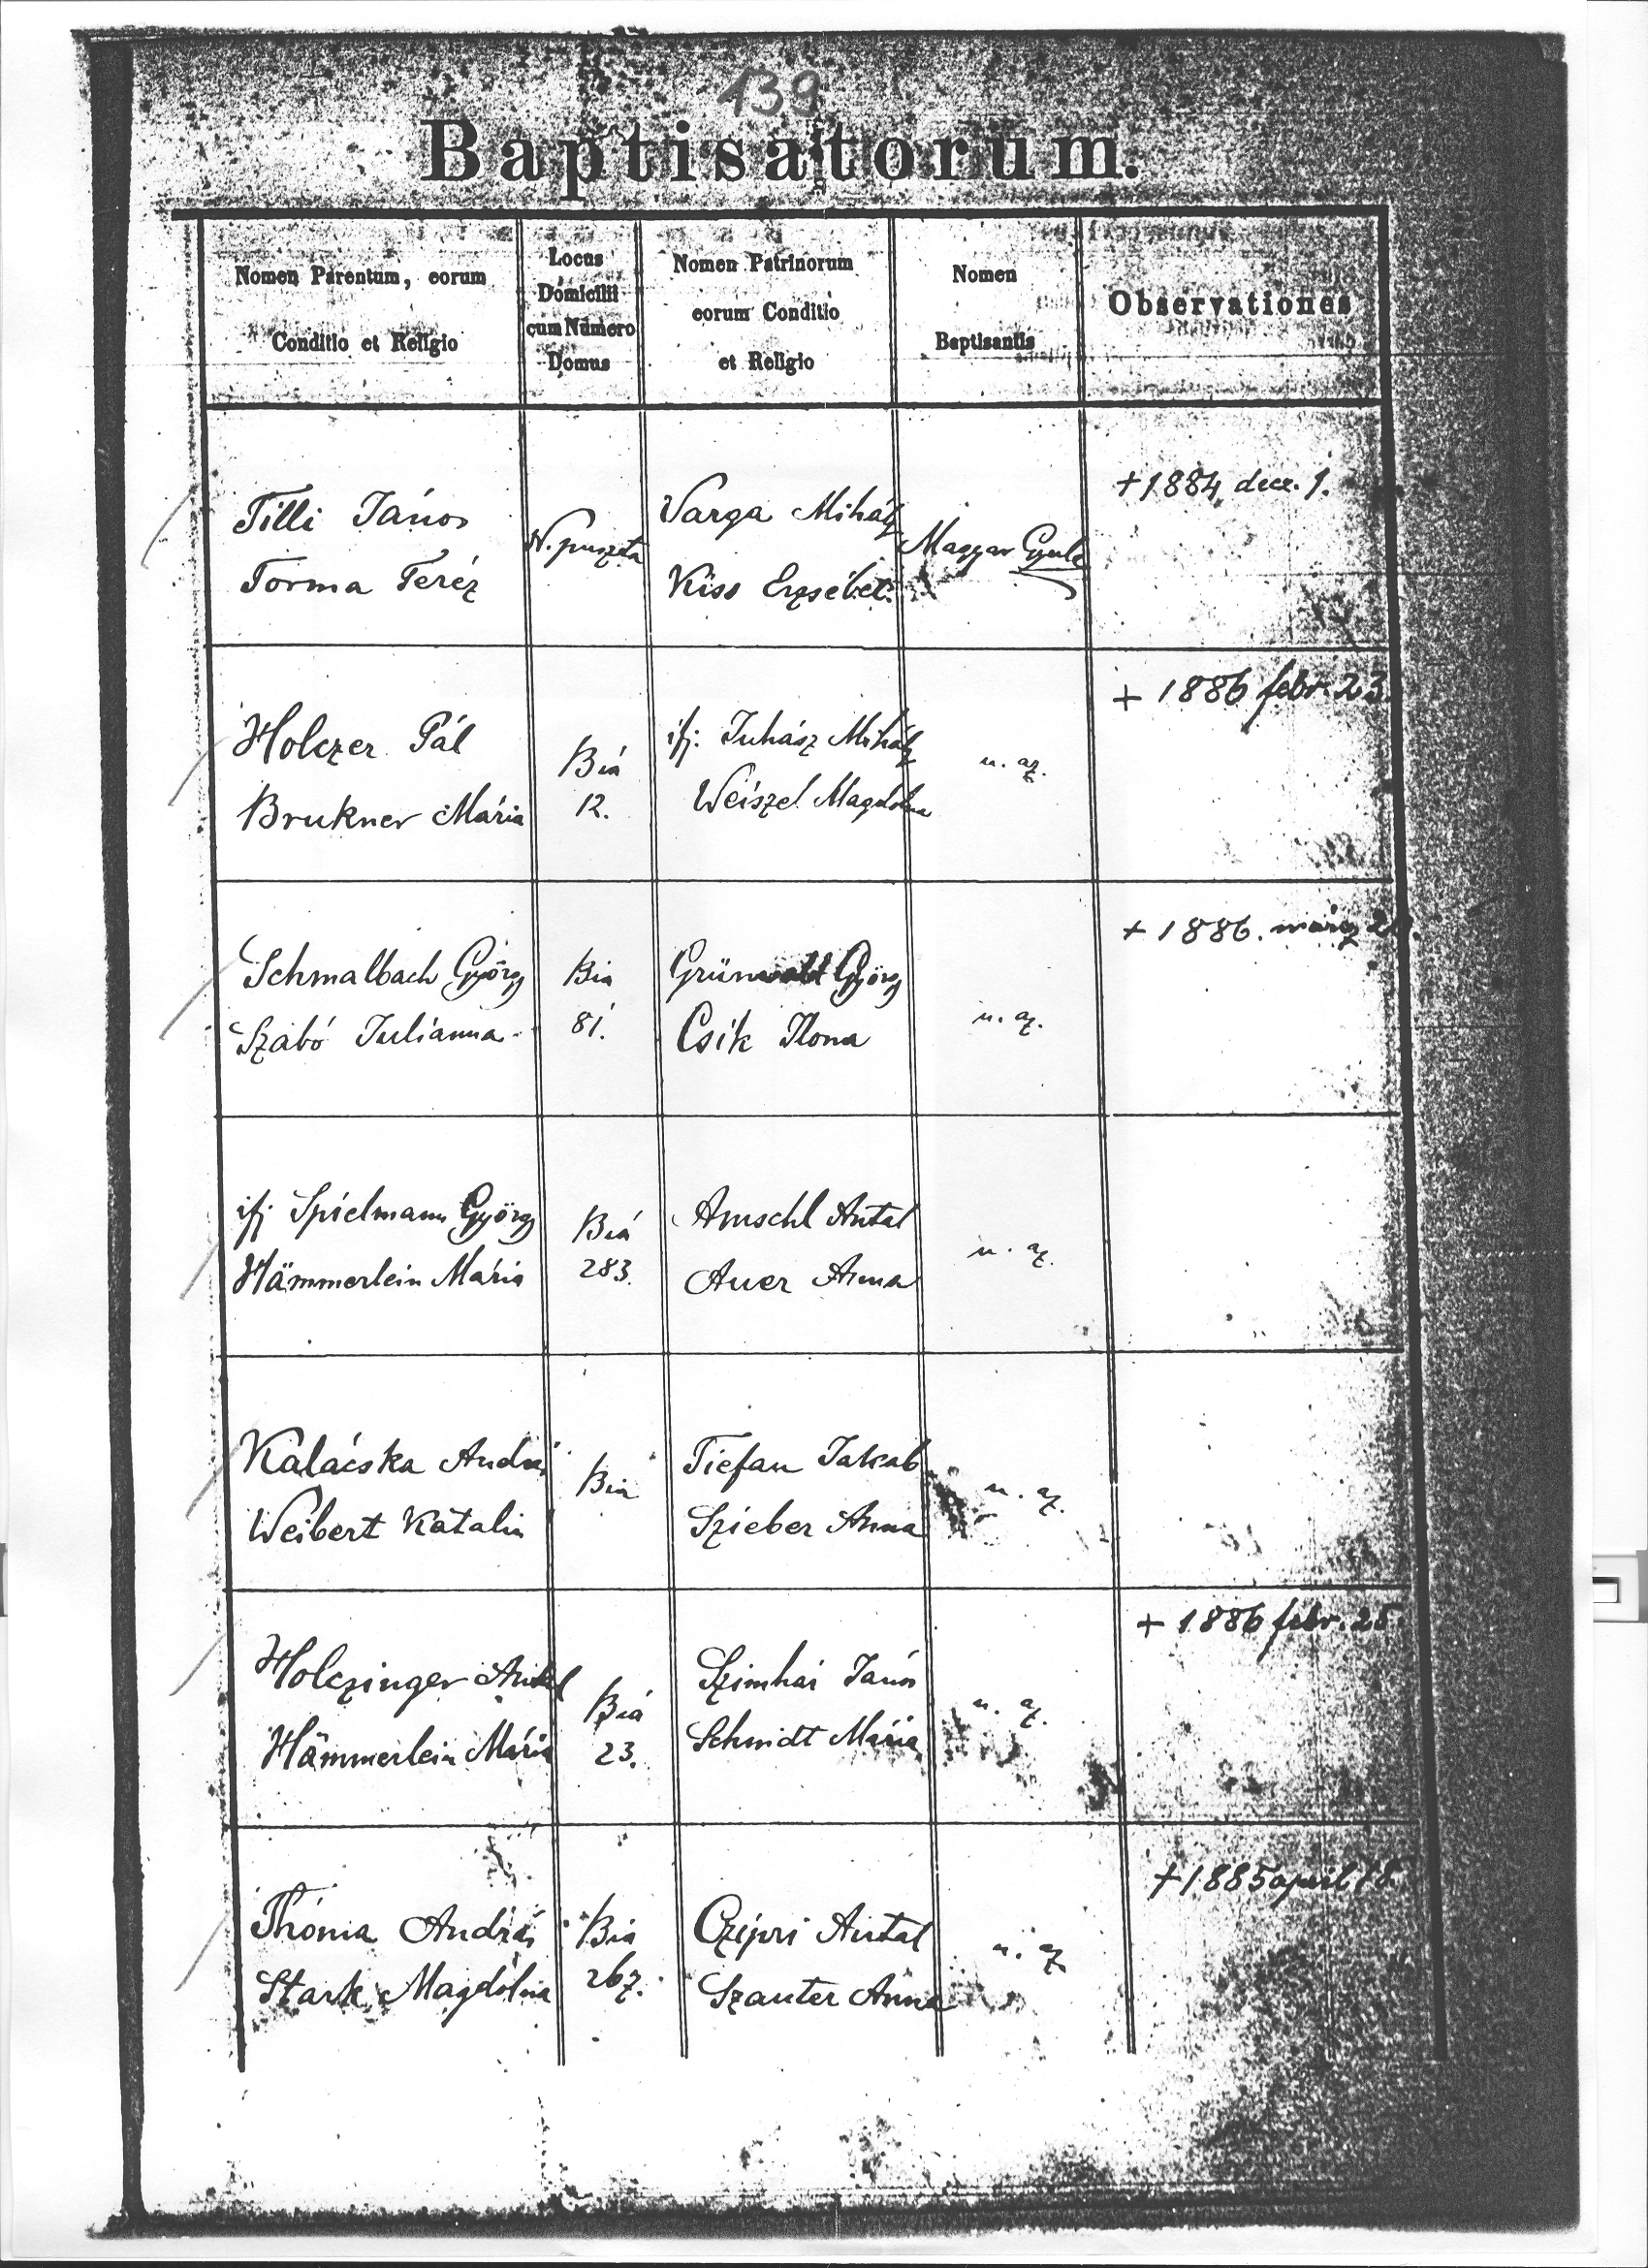 139
Baptisatorum.
Nomen Parentum, eorum
Conditio et Religio
Locus
Domicilii
cum Numero
Domus
Nomen Patrinorum
eorum Conditio
et Religio
Nomen
Baptisantis
Observationes
Tilli János
Torma Teréz
N. puszta
Varga Mihály
Kiss Erzsébet
Magyar Gyula
+ 1884 decz. 1.
Holczer Pál
Brukner Mária
Bia
12.
ifj. Juhász Mihály
Weiszel Magdolna
u. az.
+ 1886 febr. 23
Schmalbach György
Szabó Julianna
Bia
81.
Grünwald György
Csik Ilona
u. az.
+ 1886. márcz
ifj Spielmann György
Hämmerlein Mária
Biá
283.
Amschl Antal
Auer Anna
u. az.
Kalácska András
Weibert Katalin
Bia
Tiefan Jakab
Szieber Anna
u. az.
Holczinger Antal
Hämmerlein Mária
Biá
23.
Szimhár János
Schmidt Mária
u. az.
+ 1886 febr. 25.
Thóma András
Stark Magdolna
Bia
267.
Czipri Antal
Szauter Anna
u. az
+ 1885 april 18.